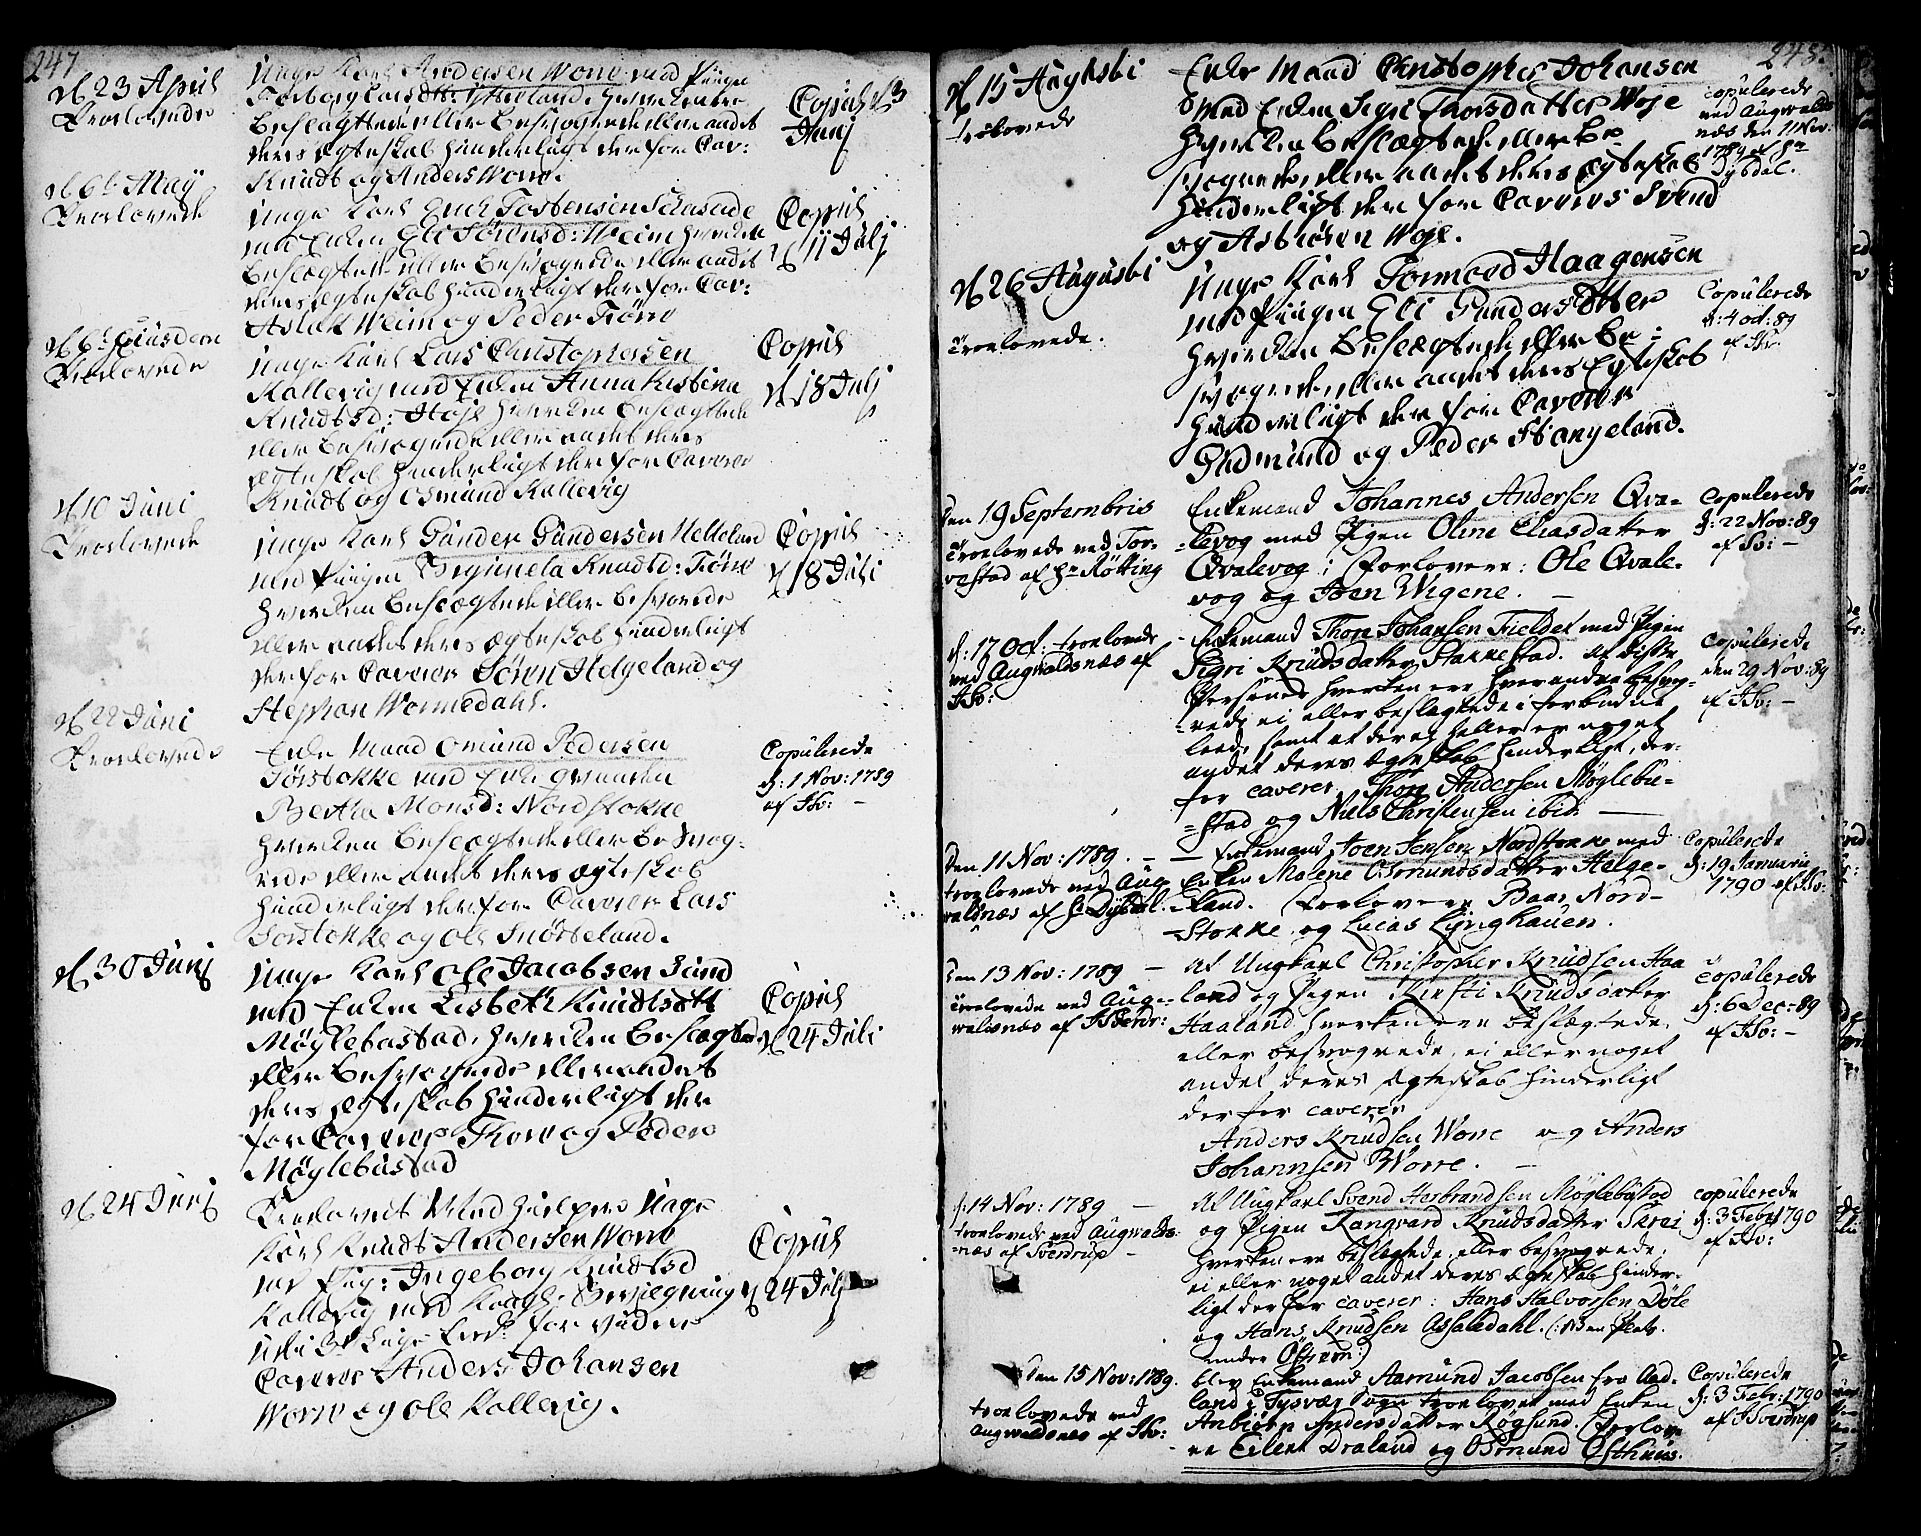 247
d 23 April
Troelovede
Unge Karl Andersen Worre med Piigen
hverken
Beslægtede eller Besvogrede eller andet
deres Ægteskab hinderligt derfor Cav:
Knudt og Anders Worre.
Copul: d 3
Junj
d 6t May
Troelovede
Unge Karl Erich Tostensen
med Enken Eli Sørensd: Weim hverken
Beslægtede eller Besvogrede eller andet
deres Ægteskab hinderligt derfor Cav:
Aslak Weim og Peder
Copul:
d 11 Julj
d 6t Ejusdem
Troelovede
Unge Karl Lars Christophersen
Kallevig med Enken Anna Kistina
Knudtsd: hverken Beslægtede
eller Besvogrede eller andet deres
Ægteskab hinderligt derfor Caverer
Knudt og Osmund Kallevig
Copul:
d 18 Julj
d 10 Juni
Troelovede
Unge Karl Gunder Gundersen Helleland
med Piigen Knudtsd:
hverken Beslægtede eller Besvogrede
eller andet deres Ægteskab hinderligt
derfor Caverer Sören Helgeland og
Stephan Wormedahl.
Copul:
d 18 Juli
d 22 Juni
Troelovede
Enke Mand Omund Pedersen
med Enke qvinden
Bertha Monsd: Nordstokke
hverken Beslægtede eller Besvog-
rede eller andet deres Ægteskab
hinderligt derfor Caverer Lars
og Ole
Copulerede
d: 1 Nov: 1789
af JSv: -
d 30 Junj
Unge Karl Ole Jacobsen Sund
med Enken Lisbeth Knudtsdtt
Møglebustad, hverken Beslægtede
eller Besvogrede eller andet
deres Ægteskab hinderligt der
for Caverer Thore og Peder
Møglebustad
Copul:
d 24 Juli
d 24 Junj
Troelovet Unge
Karl Knudt Andersen Worre
med Pig: Ingeborg Knudtsd
Kallevig med Kongl:

Caverer Anders Johansen
Worre og Ole Kallevig.
Copul:
d 24 Julj
248.
d 15 Augusti
Trolovede
Enke Mand Christopher Johansen
med Enken Sigri Thorsdatter Woje
hverken Beslægtede eller Be-
svogrede eller andet deres Ægteskab
hinderligt derfor Caveres Svend
og Asbiören Woje.
Copulerede
ved Augvalds
næs den 11 Nov:
1789 af Hr
Dybdal.
d 26 Augusti
Troelovede.
Unge Karl Tormod Haagensen
med Piigen Eli Gundersdtter
hverken Beslægtede eller Be-
svogrede eller andet deres Egteskab
hinderligt derfor Caverer
Gudmund og Peder Stangeland.
Copulerede
d: 4 Oct: 89
af JSv.
Den 19 Septembris
Troelovede ved Tor-
vestad af Hr Røtting
Enkemand Johannes Andersen Qva-
levog med Pigen Oline Eliasdatter
Qvalevog; Forlovere: Ole Qvale-
vog og Joen Wigene. -
Copulerede
d: 22 Nov: 89
af Sv: -
d: 17 Oct: troelovede
ved Augvaldsnæs af
JSv:
Enkemand Thore Johansen Fieldet med Pigen
Sigri Knudsdatter Stakkestad. At disse
Personer hverken ere hverandre besvog-
rede ei eller beslegtede i forbudne
leed, samt at der ej heller er noget
andet deres Egteskab hinderligt, der-
for caverer Thore Andersen Møglebu-
stad og Niels Christensen ibid:
Copulerede
den 29 Nov: 89
af JSv: -
Den 11 Nov: 1789. -
troelovede ved Aug-
valdnæs af Hr Dybdal.
- Enkemand Joen Jensen Nordstokke med
Enken Malene Osmundsdatter Helge-
land. Forlovere Baar Nord-
Stokke og Lucas Lynghauen.
Copulerede
d: 19 Januarii
1790 af JSv:
Den 13 Nov: 1789 -
troelovede ved Aug-
waldsnæs af JSverdr:
At Ungkarl Christopher Knudsen Haa
land og Pigen Kirsti Knudsdatter
Haaland, hverken ere beslægtede
eller besvogrede, ei eller noget
andet deres Egteskab hinderligt
derfor caverer
Anders Knudsen Worre og Anders
Johannsen Worre. -
Copulerede
d: 6 Dec: 89
af JSv: -
d: 14 Nov: 1789 -
troelovede ved Augvalds-
næs af Sverdrup -
At Ungkarl Svend Herbrandsen Møglebustad
og Pigen Rangvard Knudsdatter Skrei
hverken ere beslegtede, eller besvogrede,
ei eller noget andet deres Egteskab hinder-
ligt derfor caverer: Hans Halvorsen Døle
og Hans Knudsen Assaledahl. (: en plads
under Østrem:)
copulerede
d: 3 Febr 1790
af JSv:
Den 15 Nov: 1789.
troelovede ved
Augvaldsnæs af JSv:
blev Enkemand Aamund Jacobsen fra Aad-
land i Tysvær Sogn troelovet med Enken
Anbiörn Andersdatter Røgsund. Forlove-
re Eilert Draland og Osmund Østhuus.
Copulerede
d: 3 Febr: 1790
af JSverdrup